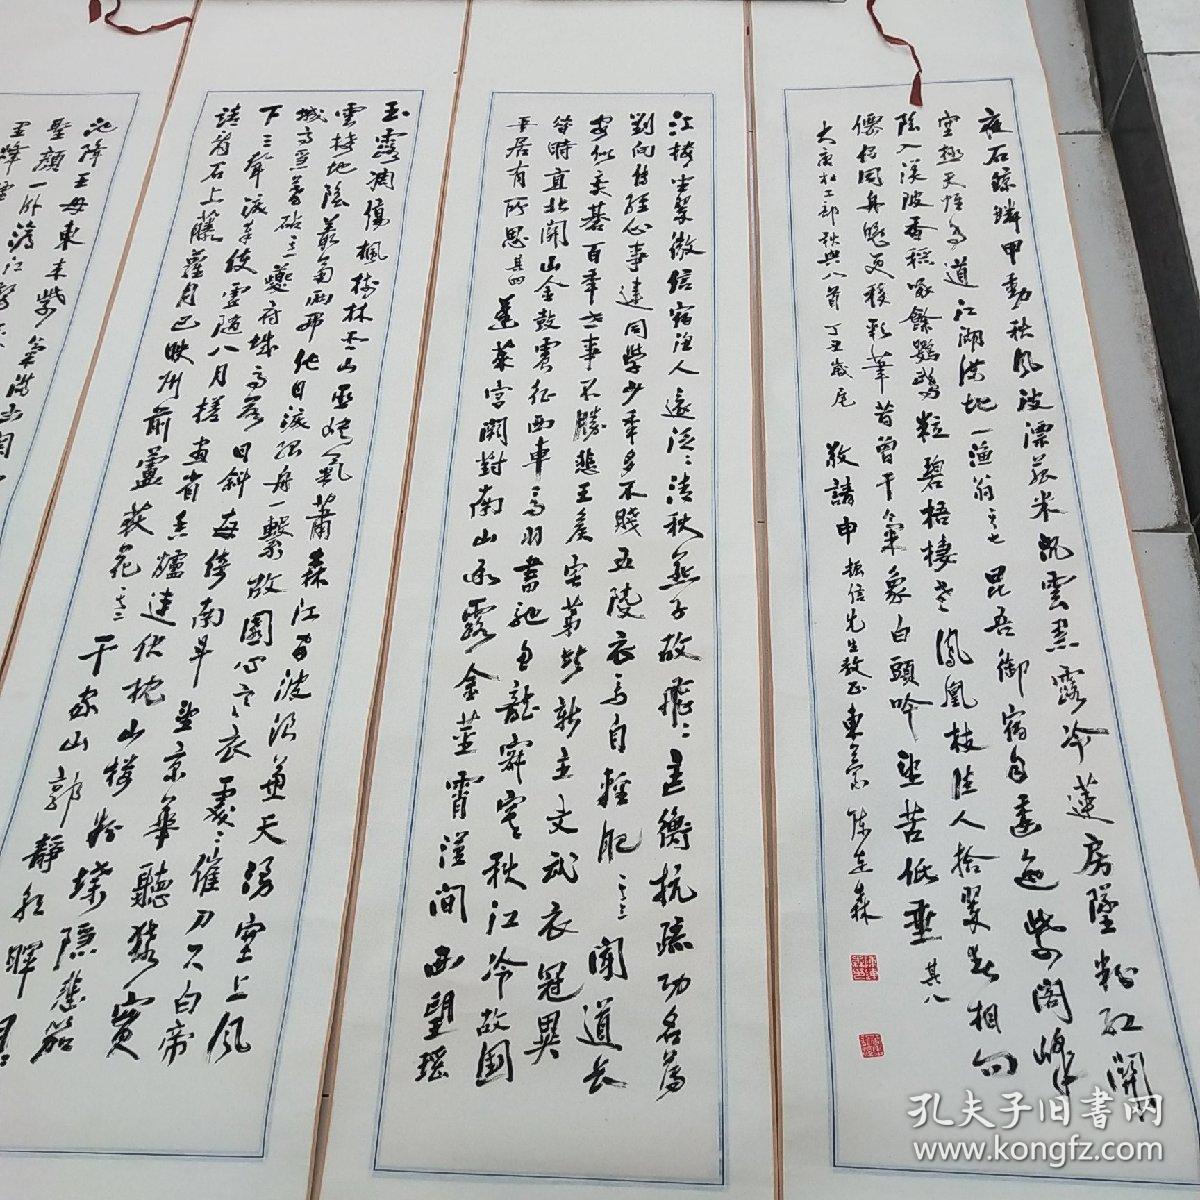 夜石鯨鱗甲動秋風波漂菰米沉雲黑露冷蓮房墜粉紅關
塞極天惟鳥道江湖滿地一漁翁其七昆吾御宿自逶迤紫閣峰
陰入渼陂香稻啄餘鸚鵡粒碧梧棲老鳳凰枝佳人拾翠春相問
僊侶同舟晚更移彩筆昔曾干氣象白頭吟望苦低垂其八
大唐杜工部秋興八首 丁丑歲尾 敬請申振信先生教正
江樓坐翠微信宿漁人還泛〻清秋燕子故飛〻匡衡抗疏功名薄
劉向傳經心事違同學少年多不賤五陵衣馬自輕肥其三聞道長
安似奕碁百年世事不勝悲王侯宅第皆新主文武衣冠異
昔時直北關山金鼓震征西車馬羽書馳魚龍寂寞秋江冷故國
平居有所思其四蓬萊宮闕對南山承露金莖霄漢間西望瑤
玉露凋傷楓樹林巫山巫峽氣蕭森江間波浪兼天湧塞上風
雲接地陰叢菊兩開他日淚孤舟一繫故園心寒衣處〻催刀尺白帝
城高急暮砧其一夔府城高落日斜每倚南斗望京華聽猿實
下三聲淚奉使虛隨八月槎畫省香爐違伏枕山樓粉堞隱悲笳
請看石上藤蘿月已映州前蘆荻花其二千家山郭靜朝暉日
池降王母東來紫氣滿函關
聖顏一卧滄江驚
孔夫子旧书网
www.kongfz.com